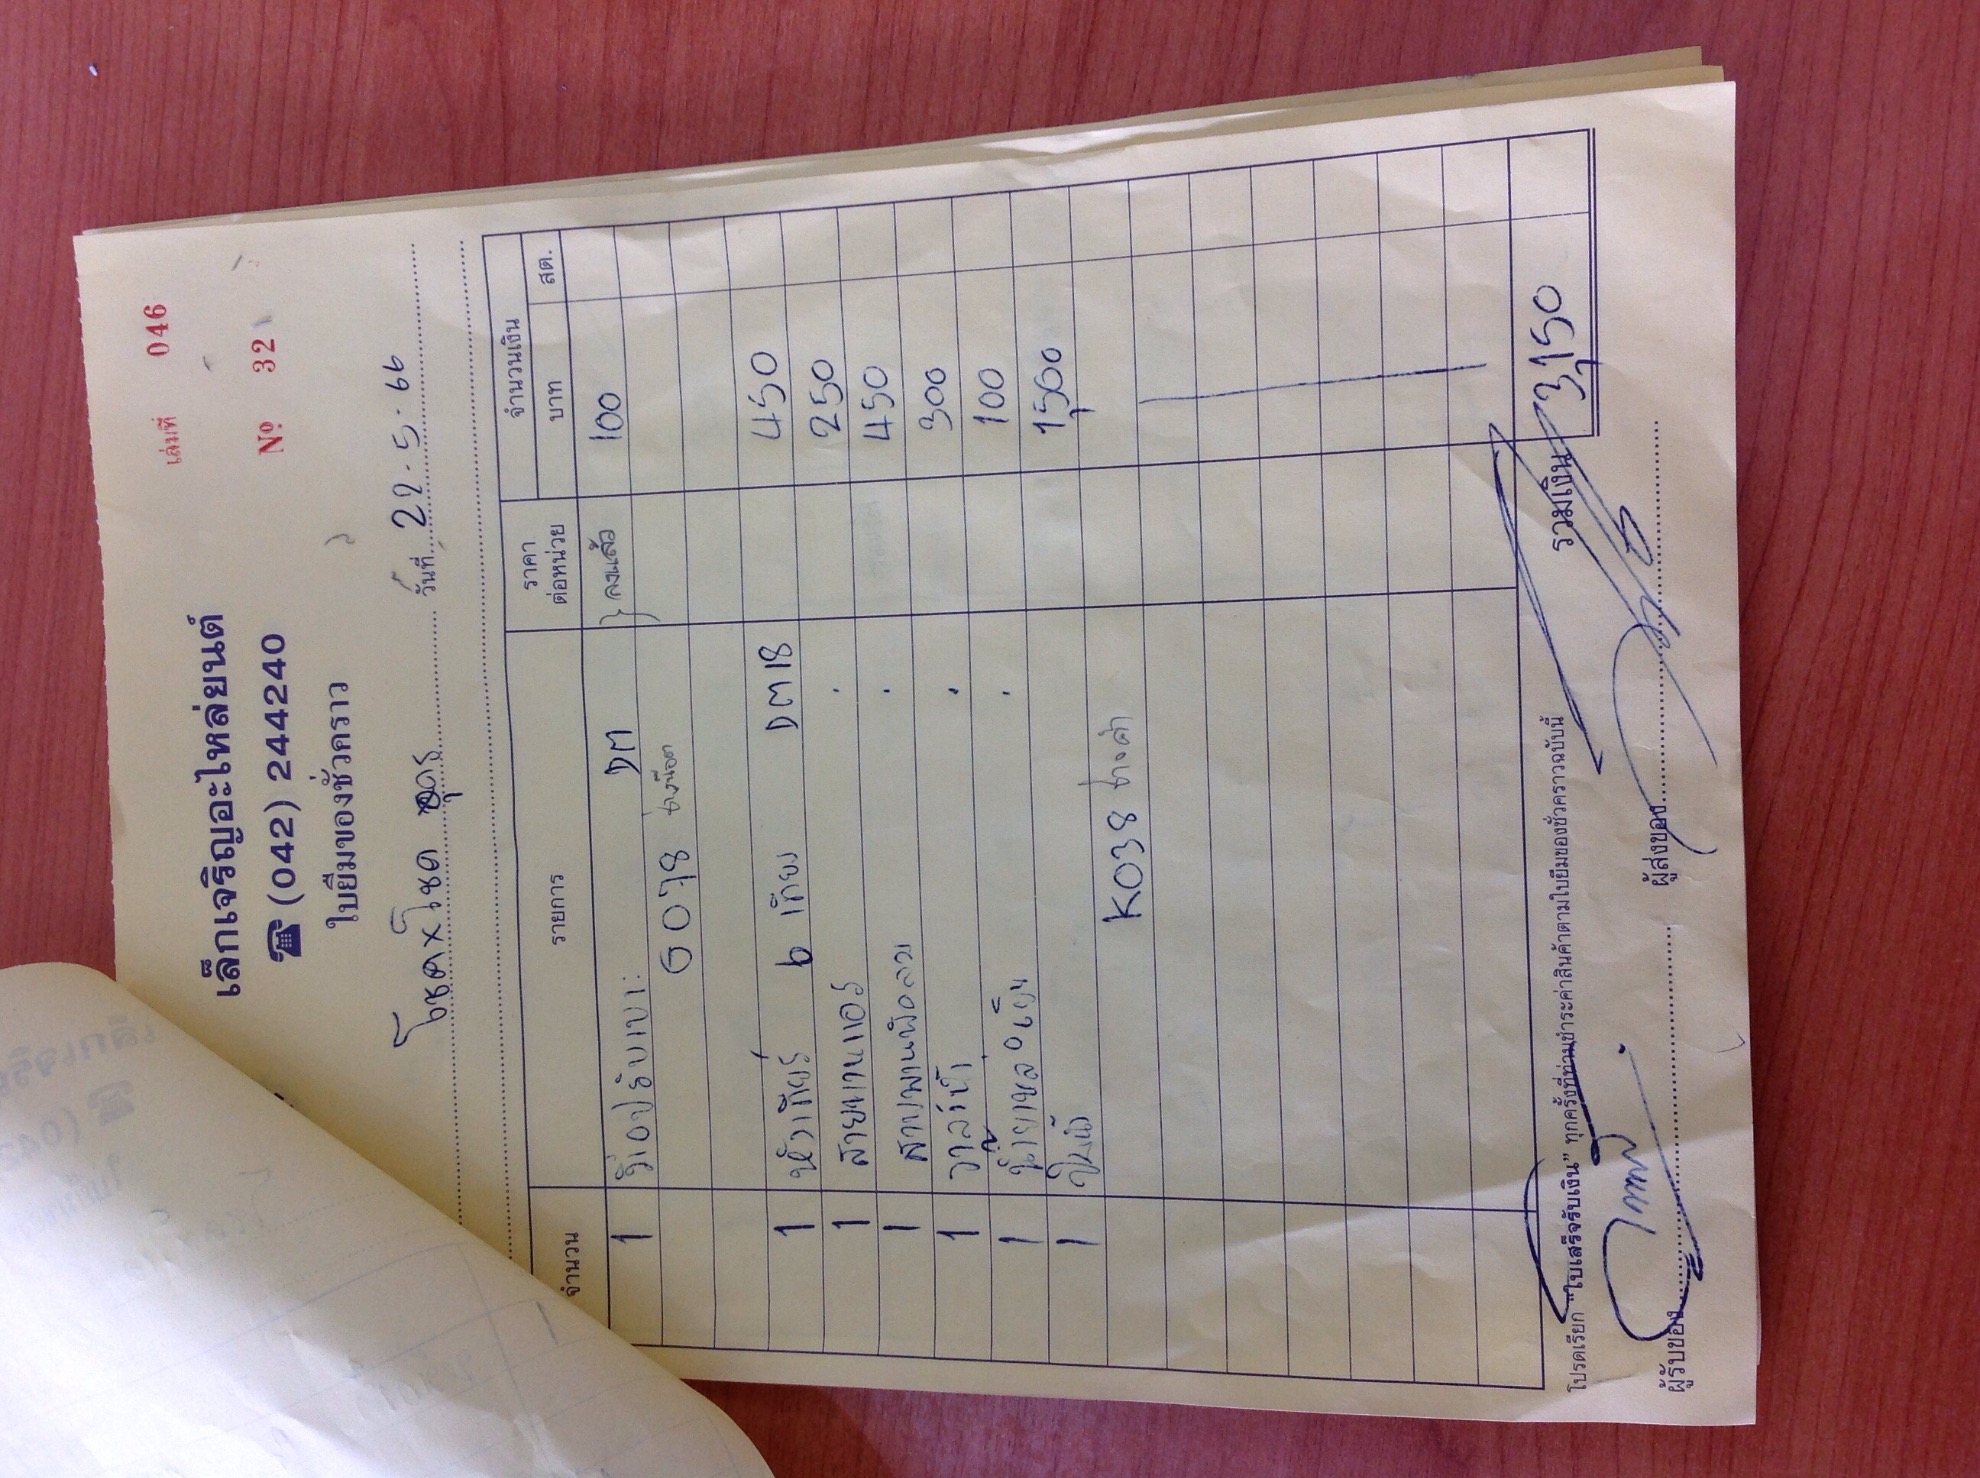 เล่มที่ 046
เล็กเจริญอะไหล่ยนต์
☎ (042) 244240
Nº 32
ใบยืมของชั่วคราว
โชค x โชค อุดร วันที่ 22-5-66
จำนวน รายการ ราคาต่อหน่วย จำนวนเงิน
บาท สต.
1 DM } ลงแล้ว 100
1 หัวเกียร์ 6 เกียง DM 18 450
1 สายพานแอร์ . 250
1 สายพานพัดลม . 450
1 วาล์วน้ำ . 300
1 . 100
1 1,500
K038 ช่างดำ
รวมเงิน 3,150
โปรดเรียก "ใบเสร็จรับเงิน" ทุกครั้งที่ท่านชำระค่าสินค้าตามใบยืมของชั่วคราวฉบับนี้
ผู้รับของ ผู้ส่งของ